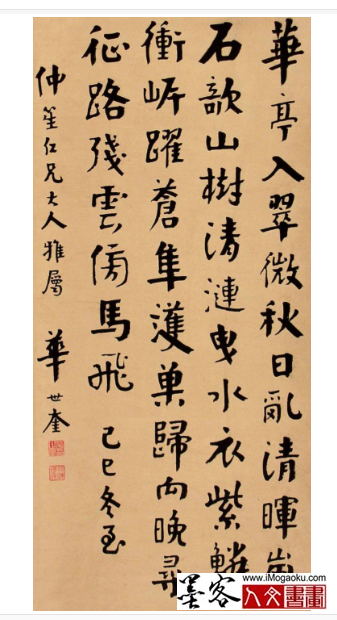 華亭入翠微秋日亂清暉崩
石欹山樹清漣曳水衣紫鱗
衝岸躍蒼隼護巢歸向晚尋
征路殘雲傍馬飛 己巳冬至
仲笙仁兄大人雅屬 華世奎
墨客
www.iMogaoku.com
人文書畫